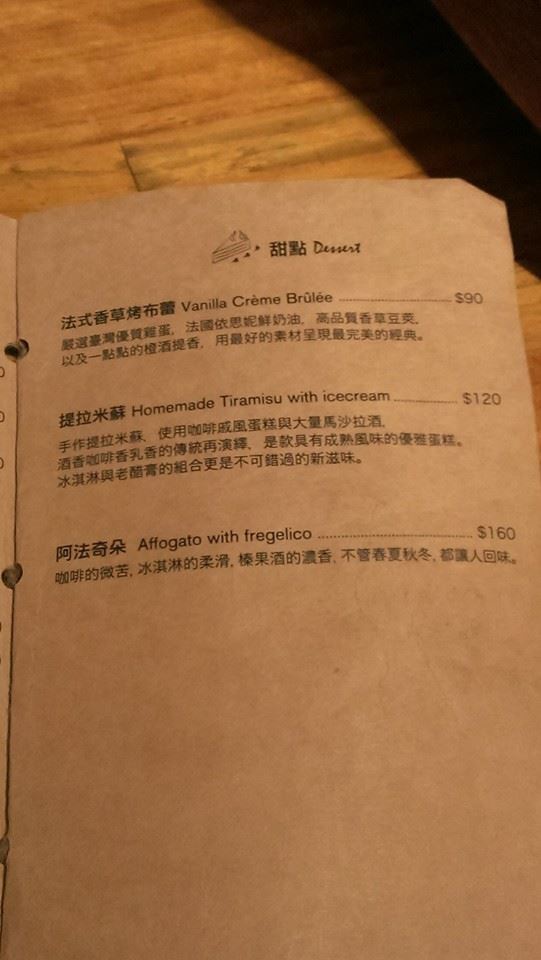 甜點 Dessert
法式香草烤布蕾 Vanilla Crème Brûlée ........................ $90
嚴選臺灣優質雞蛋, 法國依思妮鮮奶油, 高品質香草豆莢,
以及一點點的橙酒提香, 用最好的素材呈現最完美的經典。
提拉米蘇 Homemade Tiramisu with icecream .............. $120
手作提拉米蘇、使用咖啡戚風蛋糕與大量馬沙拉酒,
酒香咖啡香乳香的傳統再演繹, 是款具有成熟風味的優雅蛋糕。
冰淇淋與老醋膏的組合更是不可錯過的新滋味。
阿法奇朵 Affogato with fregelico ................................. $160
咖啡的微苦, 冰淇淋的柔滑, 榛果酒的濃香, 不管春夏秋冬, 都讓人回味。